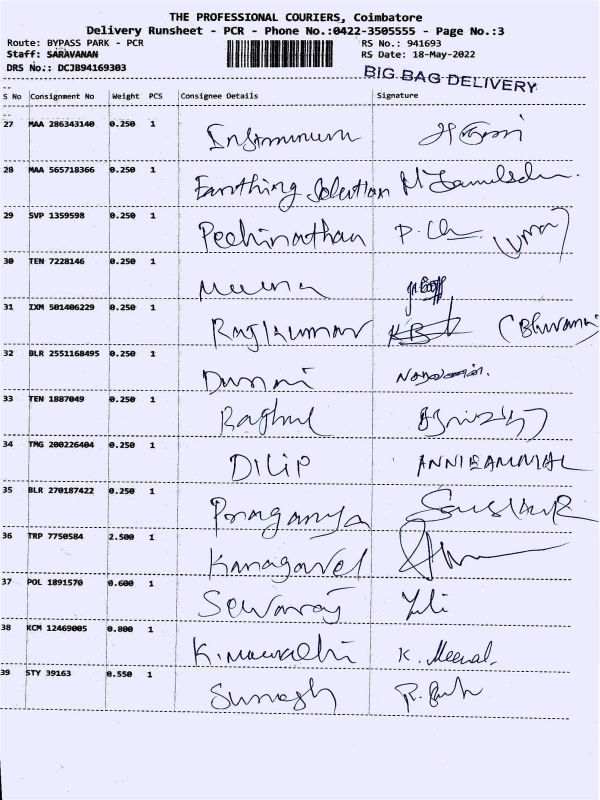 THE PROFESSIONAL COURIERS, Coimbatore
Delivery Runsheet - PCR - Phone No.:0422-3505555 - Page No.:3
Route: BYPASS PARK - PCR RS No.: 941693
Staff: SARAVANAN RS Date: 18-May-2022
DRS No.: DCJB94169303
BIG BAG DELIVERY
S No Consignment No Weight PCS Consignee Details Signature
27 MAA 286343140 0.250 1
28 MAA 565718366 0.250 1 Earthing Solution
29 SVP 1359598 0.250 1 Pechinathan P. (Uma)
30 TEN 7228146 0.250 1 Meena
31 IXM 501406229 0.250 1 Rajkumar
32 BLR 2551168495 0.250 1
33 TEN 1887049 0.250 1 Raghul
34 TMG 200226404 0.250 1 DILIP ANNIEAMMAL
35 BLR 270187422 0.250 1
36 TRP 7750584 2.500 1 Kanagavel
37 POL 1891570 0.600 1 Selvaraj
38 KCM 12469005 0.800 1 K. K. Meenal.
39 STY 39163 0.550 1